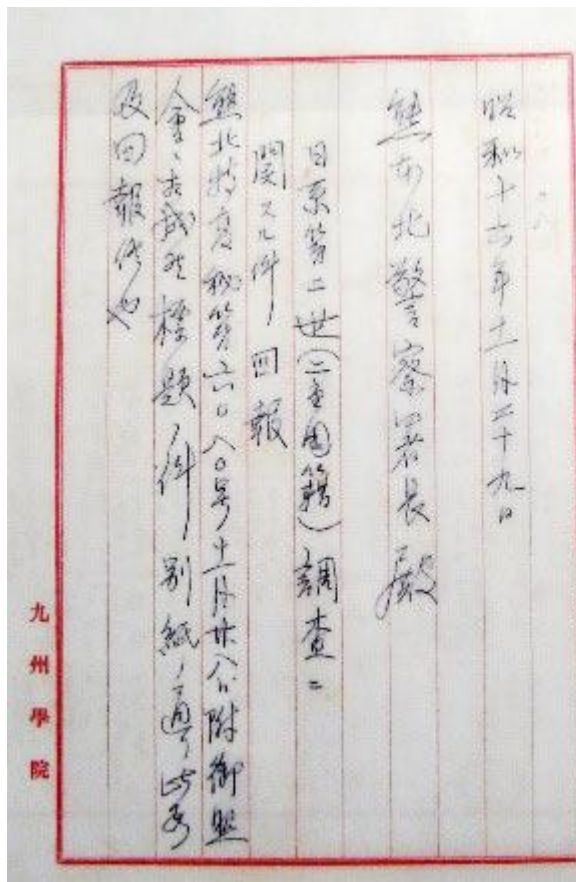 昭和十六年十一月二十九日
熊本北警察署長殿
日系第二世(二重国籍)調査ニ
関スル件ノ回報
熊北特高秘第六〇八〇号十一月廿八日附御照
会ニ相成候標題ノ件ノ別紙ノ通リ此段
及回報候也
九州學院